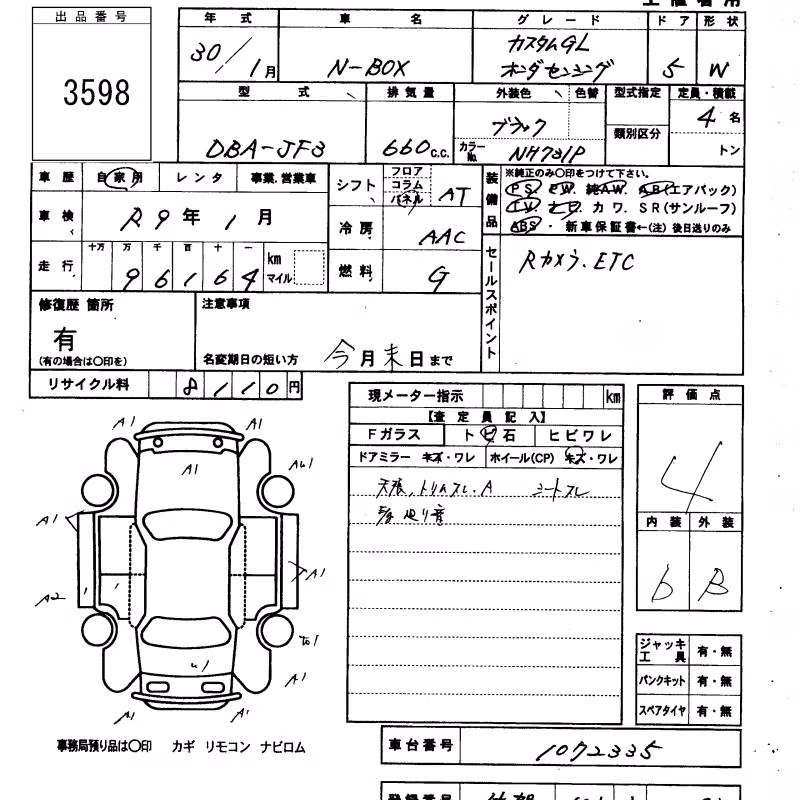 出品番号
3598
年式 車名 グレード ドア 形状
30/1月 N-BOX カスタムGL ホンダセンシング 5 W
型式 排気量 外装色 色替 型式指定 定員・積載
DBA-JF3 660c.c. ブラック 類別区分 4名
カラーNo. NH731P トン
車歴 自家用 レンタ 事業.営業車
シフト フロア コラム パネル AT
装備品 ※純正のみ○印をつけて下さい。
PS PW 純AW AB(エアバック)
TV ナビ カワ SR(サンルーフ)
ABS・新車保証書←(注)後日送りのみ
車検 R9年1月
冷房 AAC
走行 十万 万 千 百 十 一
96164 km マイル
燃料 G
セールスポイント Rカメラ.ETC
修復歴 箇所 注意事項
有
(有の場合は○印を) 名変期日の短い方 今月末日まで
リサイクル料 8110円
現メーター指示 km
【査定員記入】
Fガラス トビ石 ヒビワレ
ドアミラー キズ・ワレ ホイール(CP) キズ・ワレ
天張,トリムスレ.A シートスレ
走り音
評価点
4
内装 外装
6 B
A1 A1
A1 AU1
A1
A1
A2
to1
U1
A1
A1 A1
ジャッキ工具 有・無
パンクキット 有・無
スペアタイヤ 有・無
事務局預り品は○印 カギ リモコン ナビロム
車台番号 1072335
登録番号